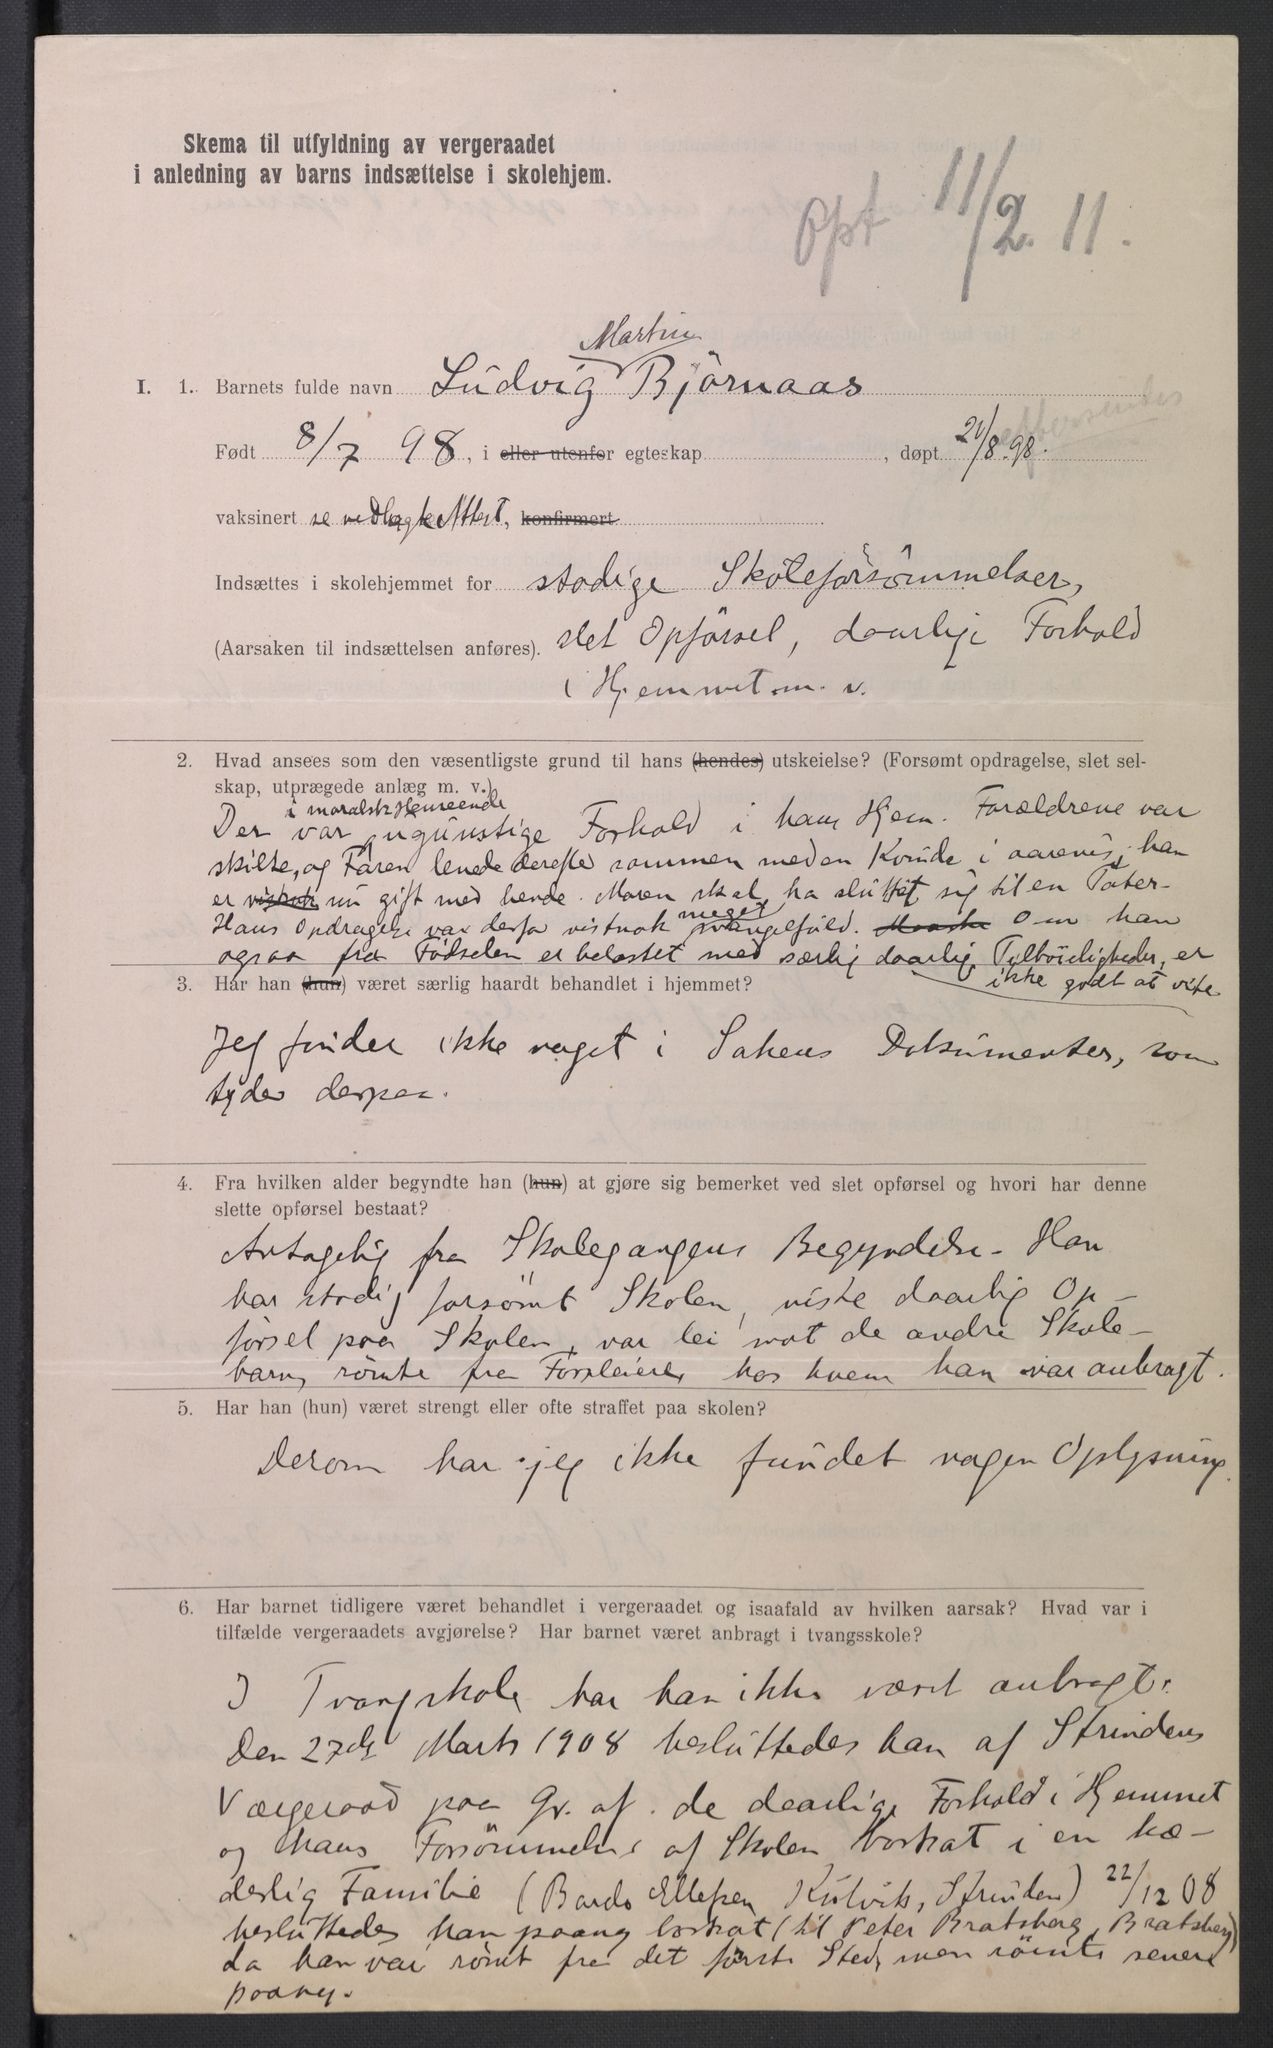 Skema til utfyldning av vergeraadet
i anledning av barns indsættelse i skolehjem.
Opt 11/2. 11.
Martin
I. 1. Barnets fulde navn Ludvig Björnaas
eftersendes
Født 8/7 98, i eller utenfor egteskap, døpt 21/8.98.
vaksinert se vedlagte Attest, konfirmert
Indsættes i skolehjemmet for stadige Skoleforsömmelser,
(Aarsaken til indsættelsen anføres). slet Opförsel, daarlige Forhold
i Hjemmet m. v.
2. Hvad ansees som den væsentligste grund til hans (hendes) utskeielse? (Forsømt opdragelse, slet sel-
skap, utprægede anlæg m. v.)
i moralsk Henseende
Der var ugunstige Forhold i hans Hjem. Forældrene var
skilte, og Faren levede derefter sammen med en Kvinde i aarevis; han
er vistnok nu gift med hende. Moren skal ha sluttet sig til en Tater-
meget
Hans Opdragelse var derfor vistnok mangelfuld. Maaske Om han
ogsaa fra Födselen er belastet med særlig daarlig Tilböieligheder, er
ikke godt at vite
3. Har han (hun) været særlig haardt behandlet i hjemmet?
Jeg finder ikke noget i Sakens Dokumenter, som
tyder derpaa.
4. Fra hvilken alder begyndte han (hun) at gjøre sig bemerket ved slet opførsel og hvori har denne
slette opførsel bestaat?
Antagelig fra Skolegangens Begyndelse. Han
har stadig forsömt Skolen, viste daarlig Op-
försel paa Skolen, var lei mot de andre Skole-
barn, römte fra Forpleiere, hos hvem han var anbragt.
5. Har han (hun) været strengt eller ofte straffet paa skolen?
Derom har jeg ikke fundet nogen Oplysning.
6. Har barnet tidligere været behandlet i vergeraadet og isaafald av hvilken aarsak? Hvad var i
tilfælde vergeraadets avgjørelse? Har barnet været anbragt i tvangsskole?
I Tvangskole har han ikke været anbragt.
Den 27de Marts 1908 besluttedes han af Strindens
Værgeraad paa Gr. af de daarlige Forhold i Hjemmet
og hans Forsömmelse af Skolen bortsat i en hæ-
derlig Familie (Bardo Ellefsen Kulvik, Strinden) 22/12 08
besluttedes han paany bortsat (til Peter Bratsberg, Bratsberg)
da han var römt fra det förste Sted, men römte senere
paany.